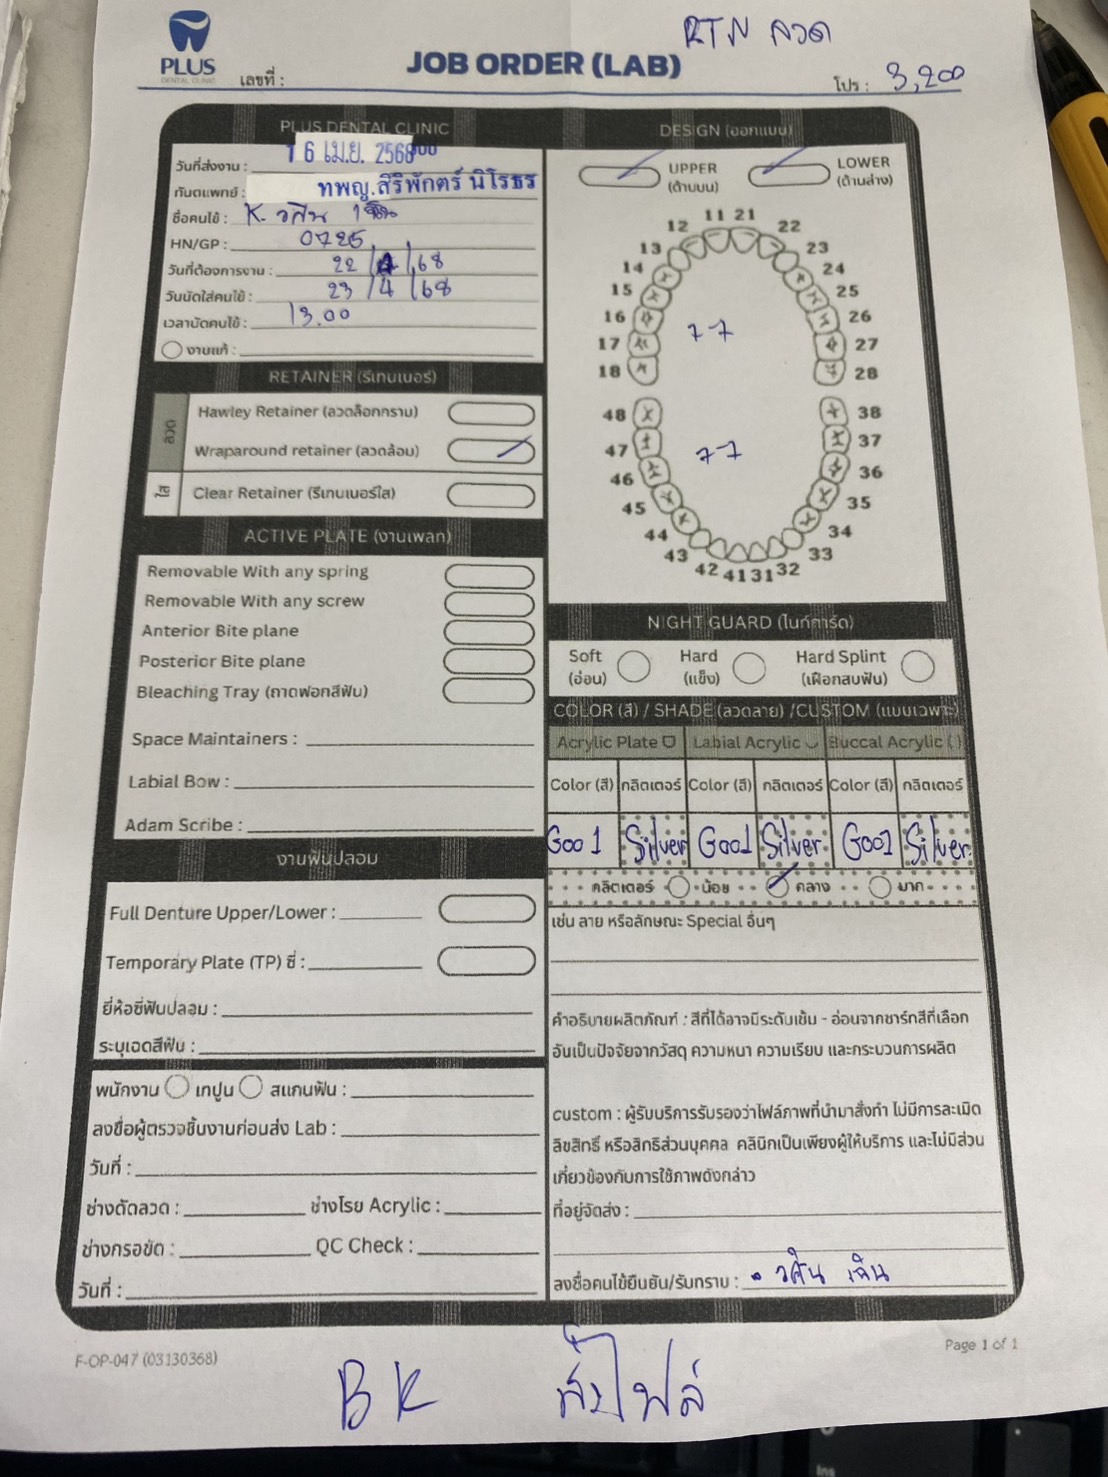 RTN ลวด
PLUS
DENTAL CLINIC
เลขที่ :
JOB ORDER (LAB)
โปร : 3,200
PLUS DENTAL CLINIC
วันที่ส่งงาน : 16 เม.ย. 2568
ทันตแพทย์ : ทพญ.สิริพักตร์ นิโรธร
ชื่อคนไข้ : K. วศิน
HN/GP : 0725
วันที่ต้องการงาน : 22 / 4 / 68
วันนัดใส่คนไข้ : 23 / 4 / 68
เวลานัดคนไข้ : 13.00
งานแก้ :
RETAINER (รีเทนเนอร์)
ลวด
Hawley Retainer (ลวดล็อกกราม)
Wraparound retainer (ลวดล้อม)
ใส
Clear Retainer (รีเทนเนอร์ใส)
ACTIVE PLATE (งานเพลท)
Removable With any spring
Removable With any screw
Anterior Bite plane
Posterior Bite plane
Bleaching Tray (ถาดฟอกสีฟัน)
Space Maintainers :
Labial Bow :
Adam Scribe :
งานฟันปลอม
Full Denture Upper/Lower :
Temporary Plate (TP) ซี่ :
ยี่ห้อซี่ฟันปลอม :
ระบุเฉดสีฟัน :
พนักงาน เทปูน สแกนฟัน :
ลงชื่อผู้ตรวจชิ้นงานก่อนส่ง Lab :
วันที่ :
ช่างดัดลวด : ช่างโรย Acrylic :
ช่างกรอขัด : QC Check :
วันที่ :
DESIGN (ออกแบบ)
UPPER
(ด้านบน)
LOWER
(ด้านล่าง)
11 21
12 22
13 23
14 24
15 25
16 26
17 7-7 27
18 28
48 38
47 7-7 37
46 36
45 35
44 34
43 33
42 41 31 32
NIGHT GUARD (ไนท์การ์ด)
Soft
(อ่อน)
Hard
(แข็ง)
Hard Splint
(เฝือกสบฟัน)
COLOR (สี) / SHADE (ลวดลาย) /CUSTOM (แบบเฉพาะ)
Acrylic Plate Labial Acrylic Buccal Acrylic ( )
Color (สี) กลิตเตอร์ Color (สี) กลิตเตอร์ Color (สี) กลิตเตอร์
G001 Silver G001 Silver G001 Silver
กลิตเตอร์ น้อย กลาง มาก
เช่น ลาย หรือลักษณะ Special อื่นๆ
คำอธิบายผลิตภัณฑ์ : สีที่ได้อาจมีระดับเข้ม - อ่อนจากชาร์ทสีที่เลือก
อันเป็นปัจจัยจากวัสดุ ความหนา ความเรียบ และกระบวนการผลิต
custom : ผู้รับบริการรับรองว่าไฟล์ภาพที่นำมาสั่งทำ ไม่มีการละเมิด
ลิขสิทธิ์ หรือสิทธิส่วนบุคคล คลินิกเป็นเพียงผู้ให้บริการ และไม่มีส่วน
เกี่ยวข้องกับการใช้ภาพดังกล่าว
ที่อยู่จัดส่ง :
ลงชื่อคนไข้ยืนยัน/รับทราบ : วศิน เฉิน
F-OP-047 (03130368)
Page 1 of 1
BK ส่งไฟล์
Ins